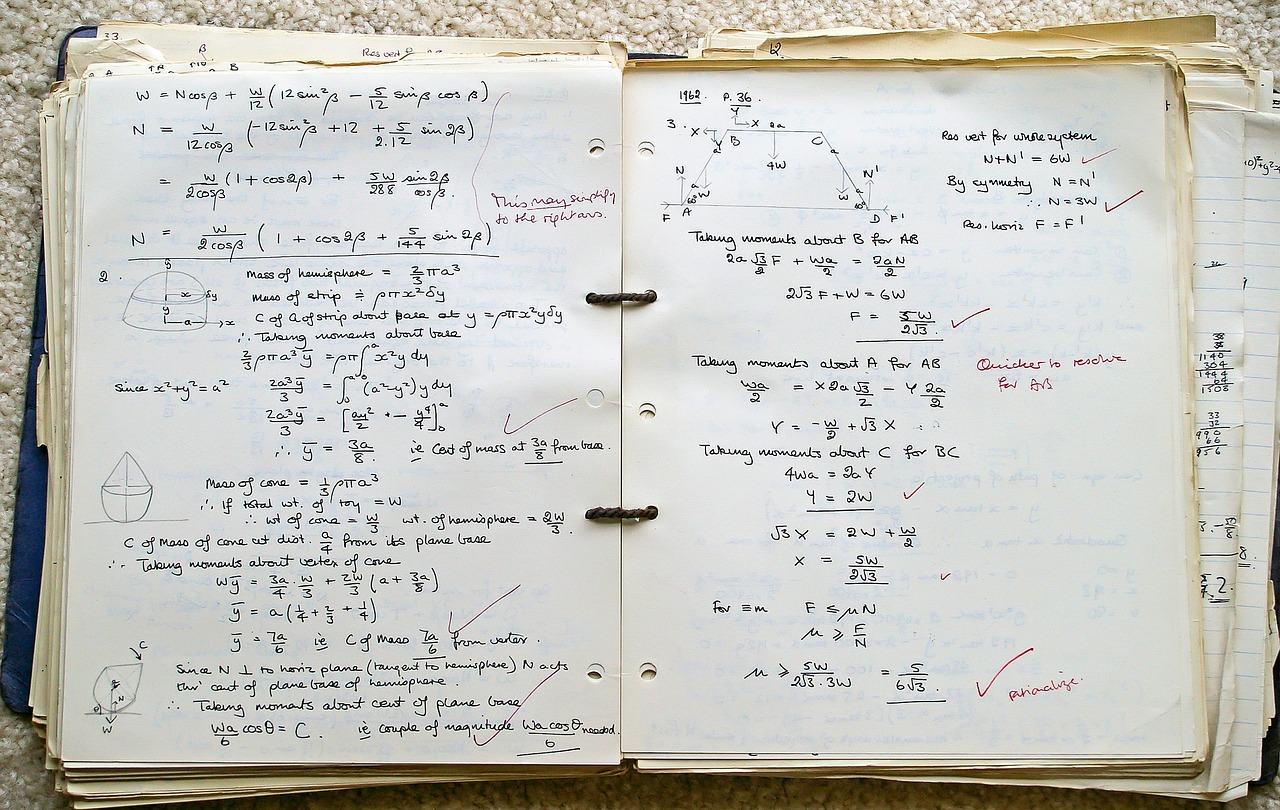 33.
β
Res vert
A B
W = Ncosβ + W/12 (12sin²β − 5/12 sinβ cosβ)
N = W/12cosβ (−12sin²β + 12 + 5/2.12 sin2β)
= W/2cosβ (1 + cos2β) + 5W/288 sin2β/cosβ.
This may simplify
to the right ans.
N = W/2cosβ (1 + cos2β + 5/144 sin2β)
2.
y
x δy
y
a x
Mass of hemisphere = 2/3 πa³
Mass of strip ≑ ρπx²δy
C of G of strip about base at y = ρπx²yδy
∴ Taking moments about base
2/3 ρπa³ȳ = ρπ∫₀ᵃ x²y dy
Since x²+y² = a² 2a³ȳ/3 = ∫₀ᵃ (a²−y²) y dy
2a³ȳ/3 = [ay²/2 − y⁴/4]₀ᵃ
∴ ȳ = 3a/8 ie Cent of mass at 3a/8 from base.
Mass of cone = 1/3 ρπa³
∴ If total wt. of toy = W
∴ wt of cone = W/3 wt. of hemisphere = 2W/3.
C of Mass of cone at dist. a/4 from its plane base
∴ Taking moments about vertex of cone
Wȳ = 3a/4 . W/3 + 2W/3 (a + 3a/8)
ȳ = a(1/4 + 2/3 + 1/4)
ȳ = 7a/6 ie C of Mass 7a/6 from vertex.
C
N
θ
W
Since N ⊥ to horiz plane (tangent to hemisphere) N acts
thro' cent of plane base of hemisphere.
∴ Taking moments about cent of plane base
Wa/6 cosθ = C. ie couple of magnitude Wa cosθ/6 needed.
12.
1962. P. 36.
3.
Y
X X 2a
B C
Y a a
4W
N a a N'
W W
60° 60°
F A D F'
Res vert for whole system
N+N' = 6W
By symmetry N = N'
∴ N = 3W
Res. horiz F = F'
Taking moments about B for AB
2a √3/2 F + Wa/2 = 2aN/2
2√3 F + W = 6W
F = 5W/2√3.
Taking moments about A for AB
Quicker to resolve
for AB
Wa/2 = X 2a √3/2 − Y 2a/2
Y = −W/2 + √3 X
Taking moments about C for BC
4Wa = 2aY
Y = 2W
√3 X = 2W + W/2
X = 5W/2√3
For ≡m F ≤ μN
μ ≥ F/N
μ ≥ 5W/2√3.3W = 5/6√3.
rationalize.
38
38
1140
304
1444
64
1508
33
32
990
66
956
8.
2.